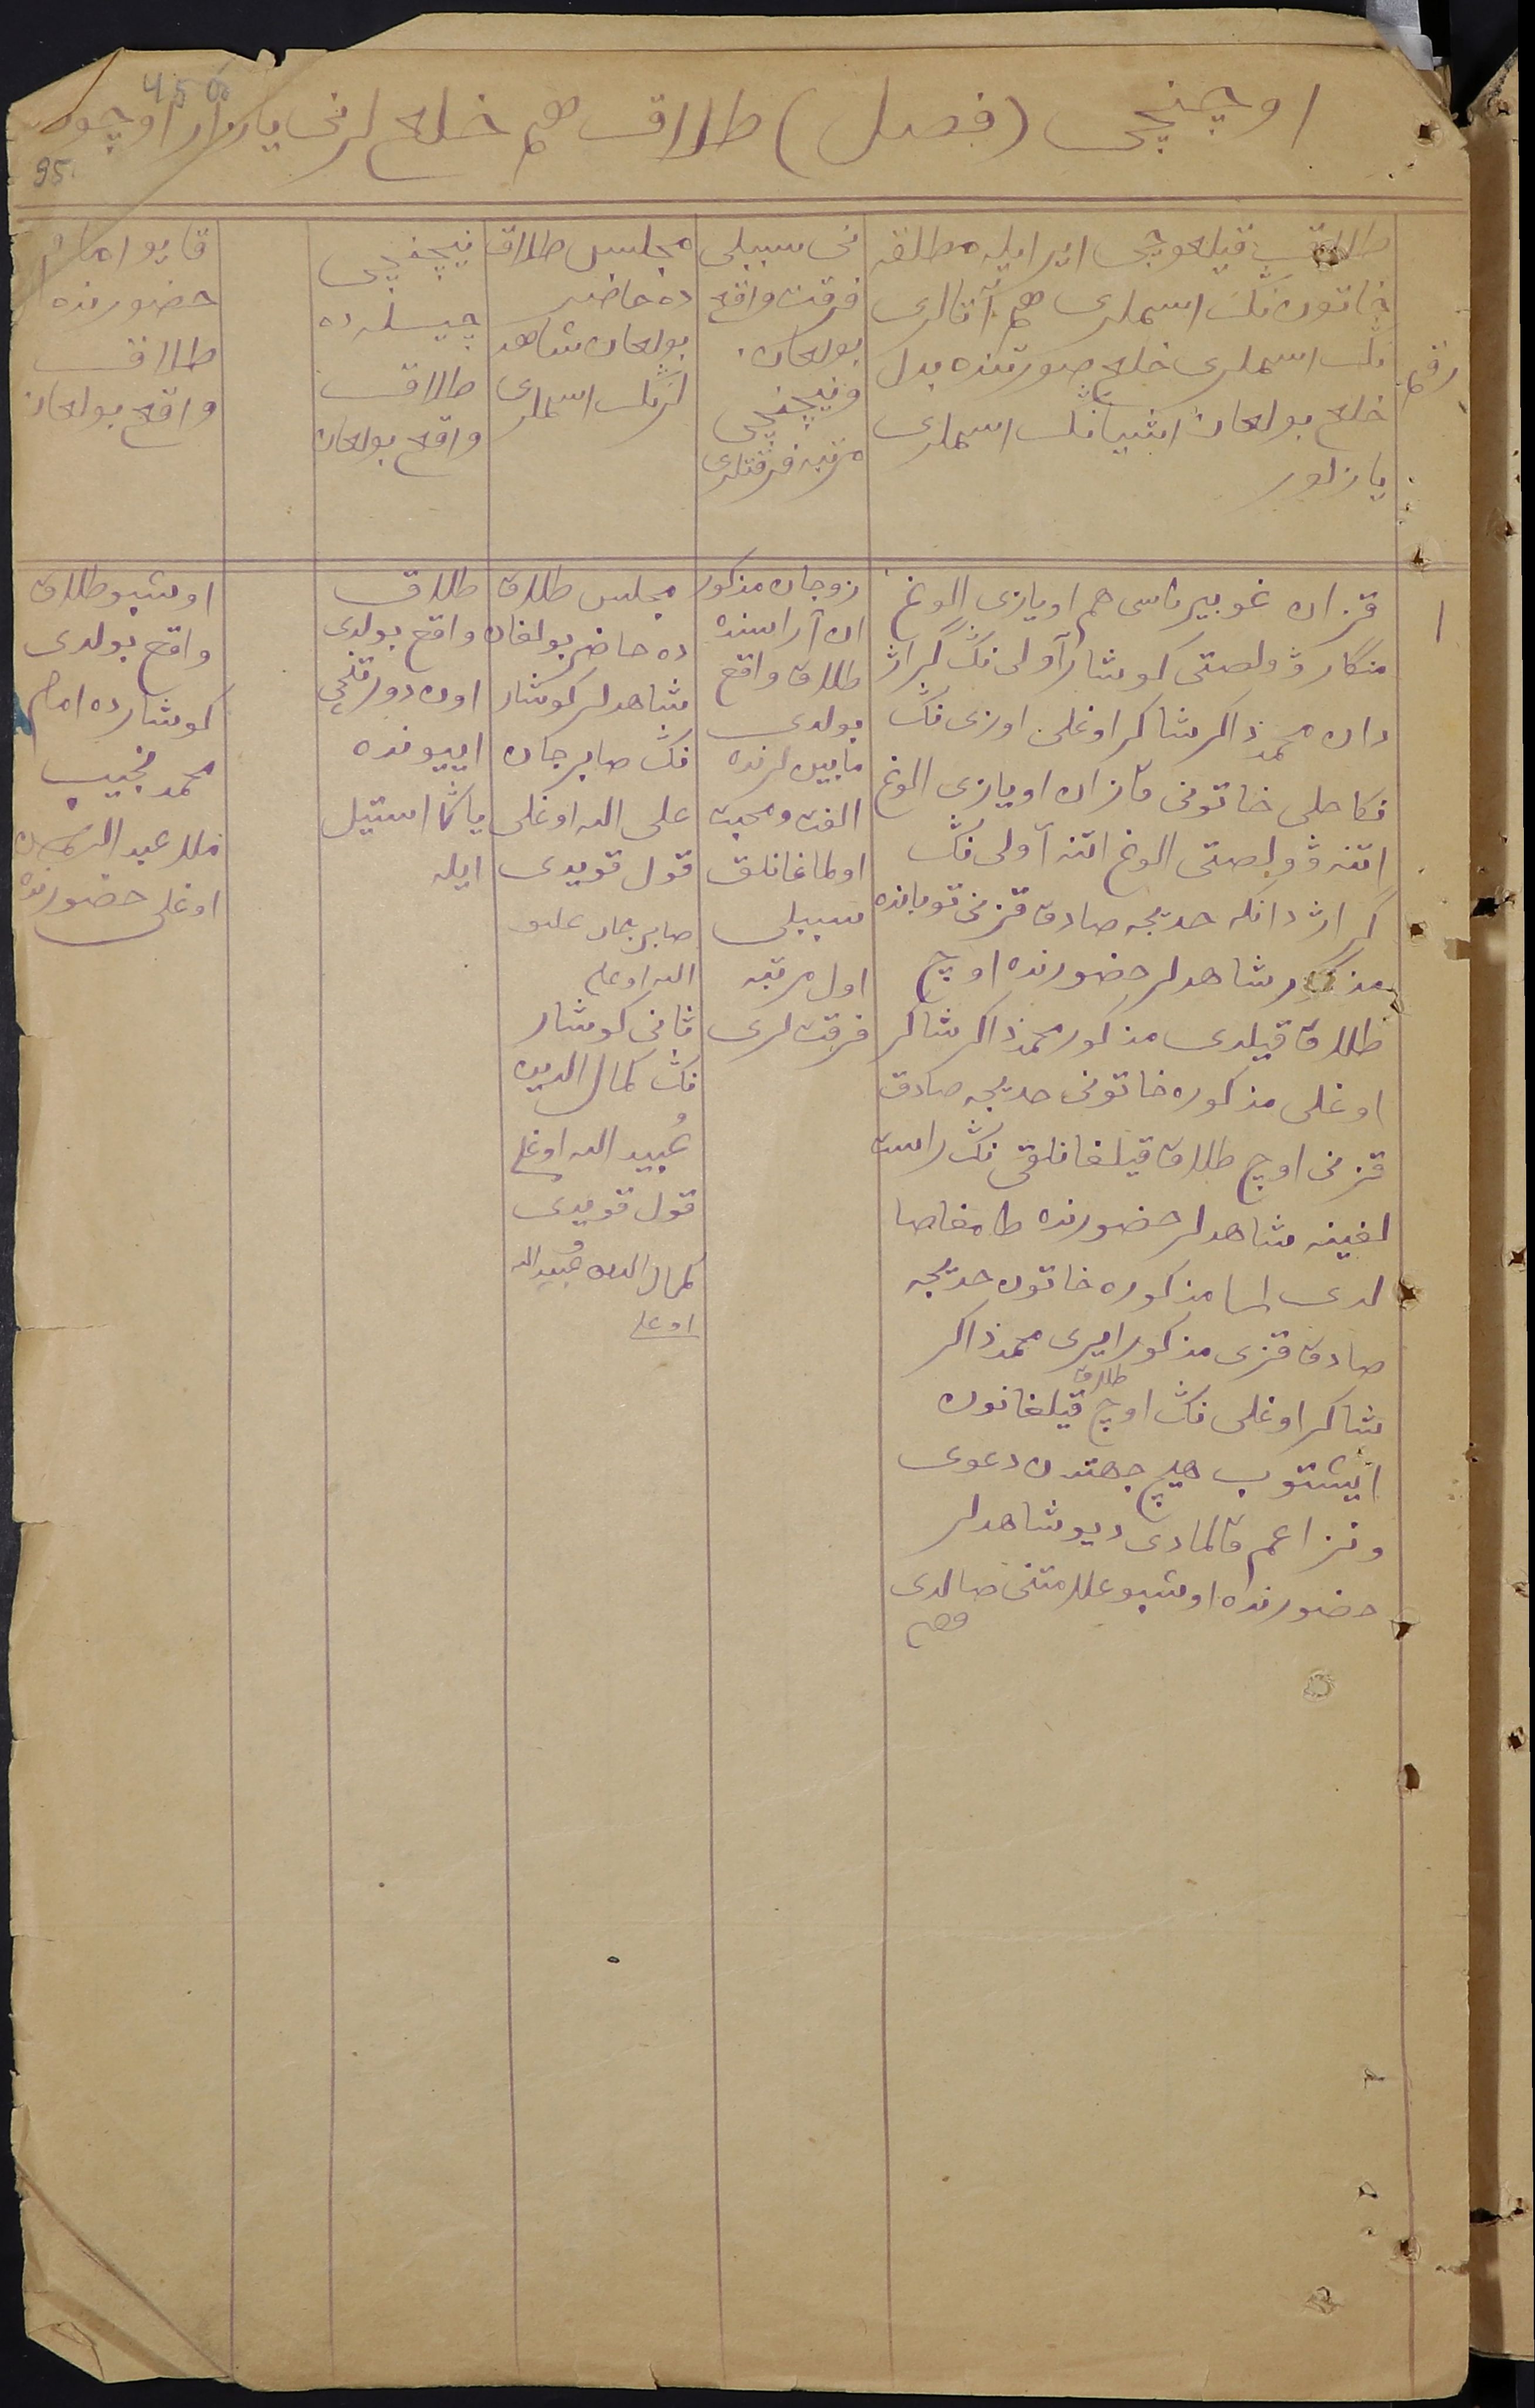 450
95
اوچنچی (فصل) طلاق هم خلع لرنی یازار اوچون
رقم
طلاق قیلعوچی ایر ایله مطلقه
خاتون نڭ اسملری هم آتالری
نڭ اسملری خلع صورتنده بدل
خلع بولعان اشیانڭ اسملری
یازلور
نی سببلی
فرقت واقع
بولعان
و نیچنچی
مرتبه فرقتلری
مجلس طلاق
ده حاضر
بولعان شاهد
لرنڭ اسملری
نیچنچی
چیسلاده
طلاق
واقع بولعان
قایو امام
حضورنده
طلاق
واقع بولعان
١
قزان غوبیرناسی هم اویازی الوغ
منگار ۋولصتی کوشار آولی نڭ گراژ
دان محمد ذاکر شاکر اوغلی اوزی نڭ
نکاحلی خاتونی قازان اویازی الوغ
اتنه ۋولصتی الوغ اتنه آولی نڭ
گراژدانکه خدیجه صادق قزنی توبانده
مذکور شاهدلر حضورنده اوچ
طلاق قیلدی مذکور محمد ذاکر شاکر
اوغلی مذکوره خاتونی خدیجه صادق
قزنی اوچ طلاق قیلغانلقی نڭ راست
لغینه شاهدلر حضورنده طامغاصا
لدی لما مذکوره خاتون خدیجه
صادق قزی مذکور ایری محمد ذاکر
شاکر اوغلی نڭ اوچ طلاق قیلغانون
ایشتوب هیچ جهتدن دعوی
و نزاعم قالمادی دیو شاهدلر
حضورنده اوشبو علامتنی صالدی
زوجان مذکور
ان آراسنده
طلاق واقع
بولدی
مابین لرنده
الفت و محبت
اولماغانلق
سببلی
اول مرتبه
فرقت لری
مجلس طلاق
ده حاضر بولغان
شاهدلر کوشار
نڭ صابرجان
علی الله اوغلی
قول قویدی
صابرجان علی
الله اوغلی
ثانی کوشار
نڭ کمال الدین
عُبید الله اوغلی
قول قویدی
کمال الدین عُبید الله
اوغلی
طلاق
واقع بولدی
اون دورتنچی
اییونده
یاڭا استیل
ایله
اوشبو طلاق
واقع بولدی
کوشارده امام
محمد نجیب
ملا عبد الرحمن
اوغلی حضورنده